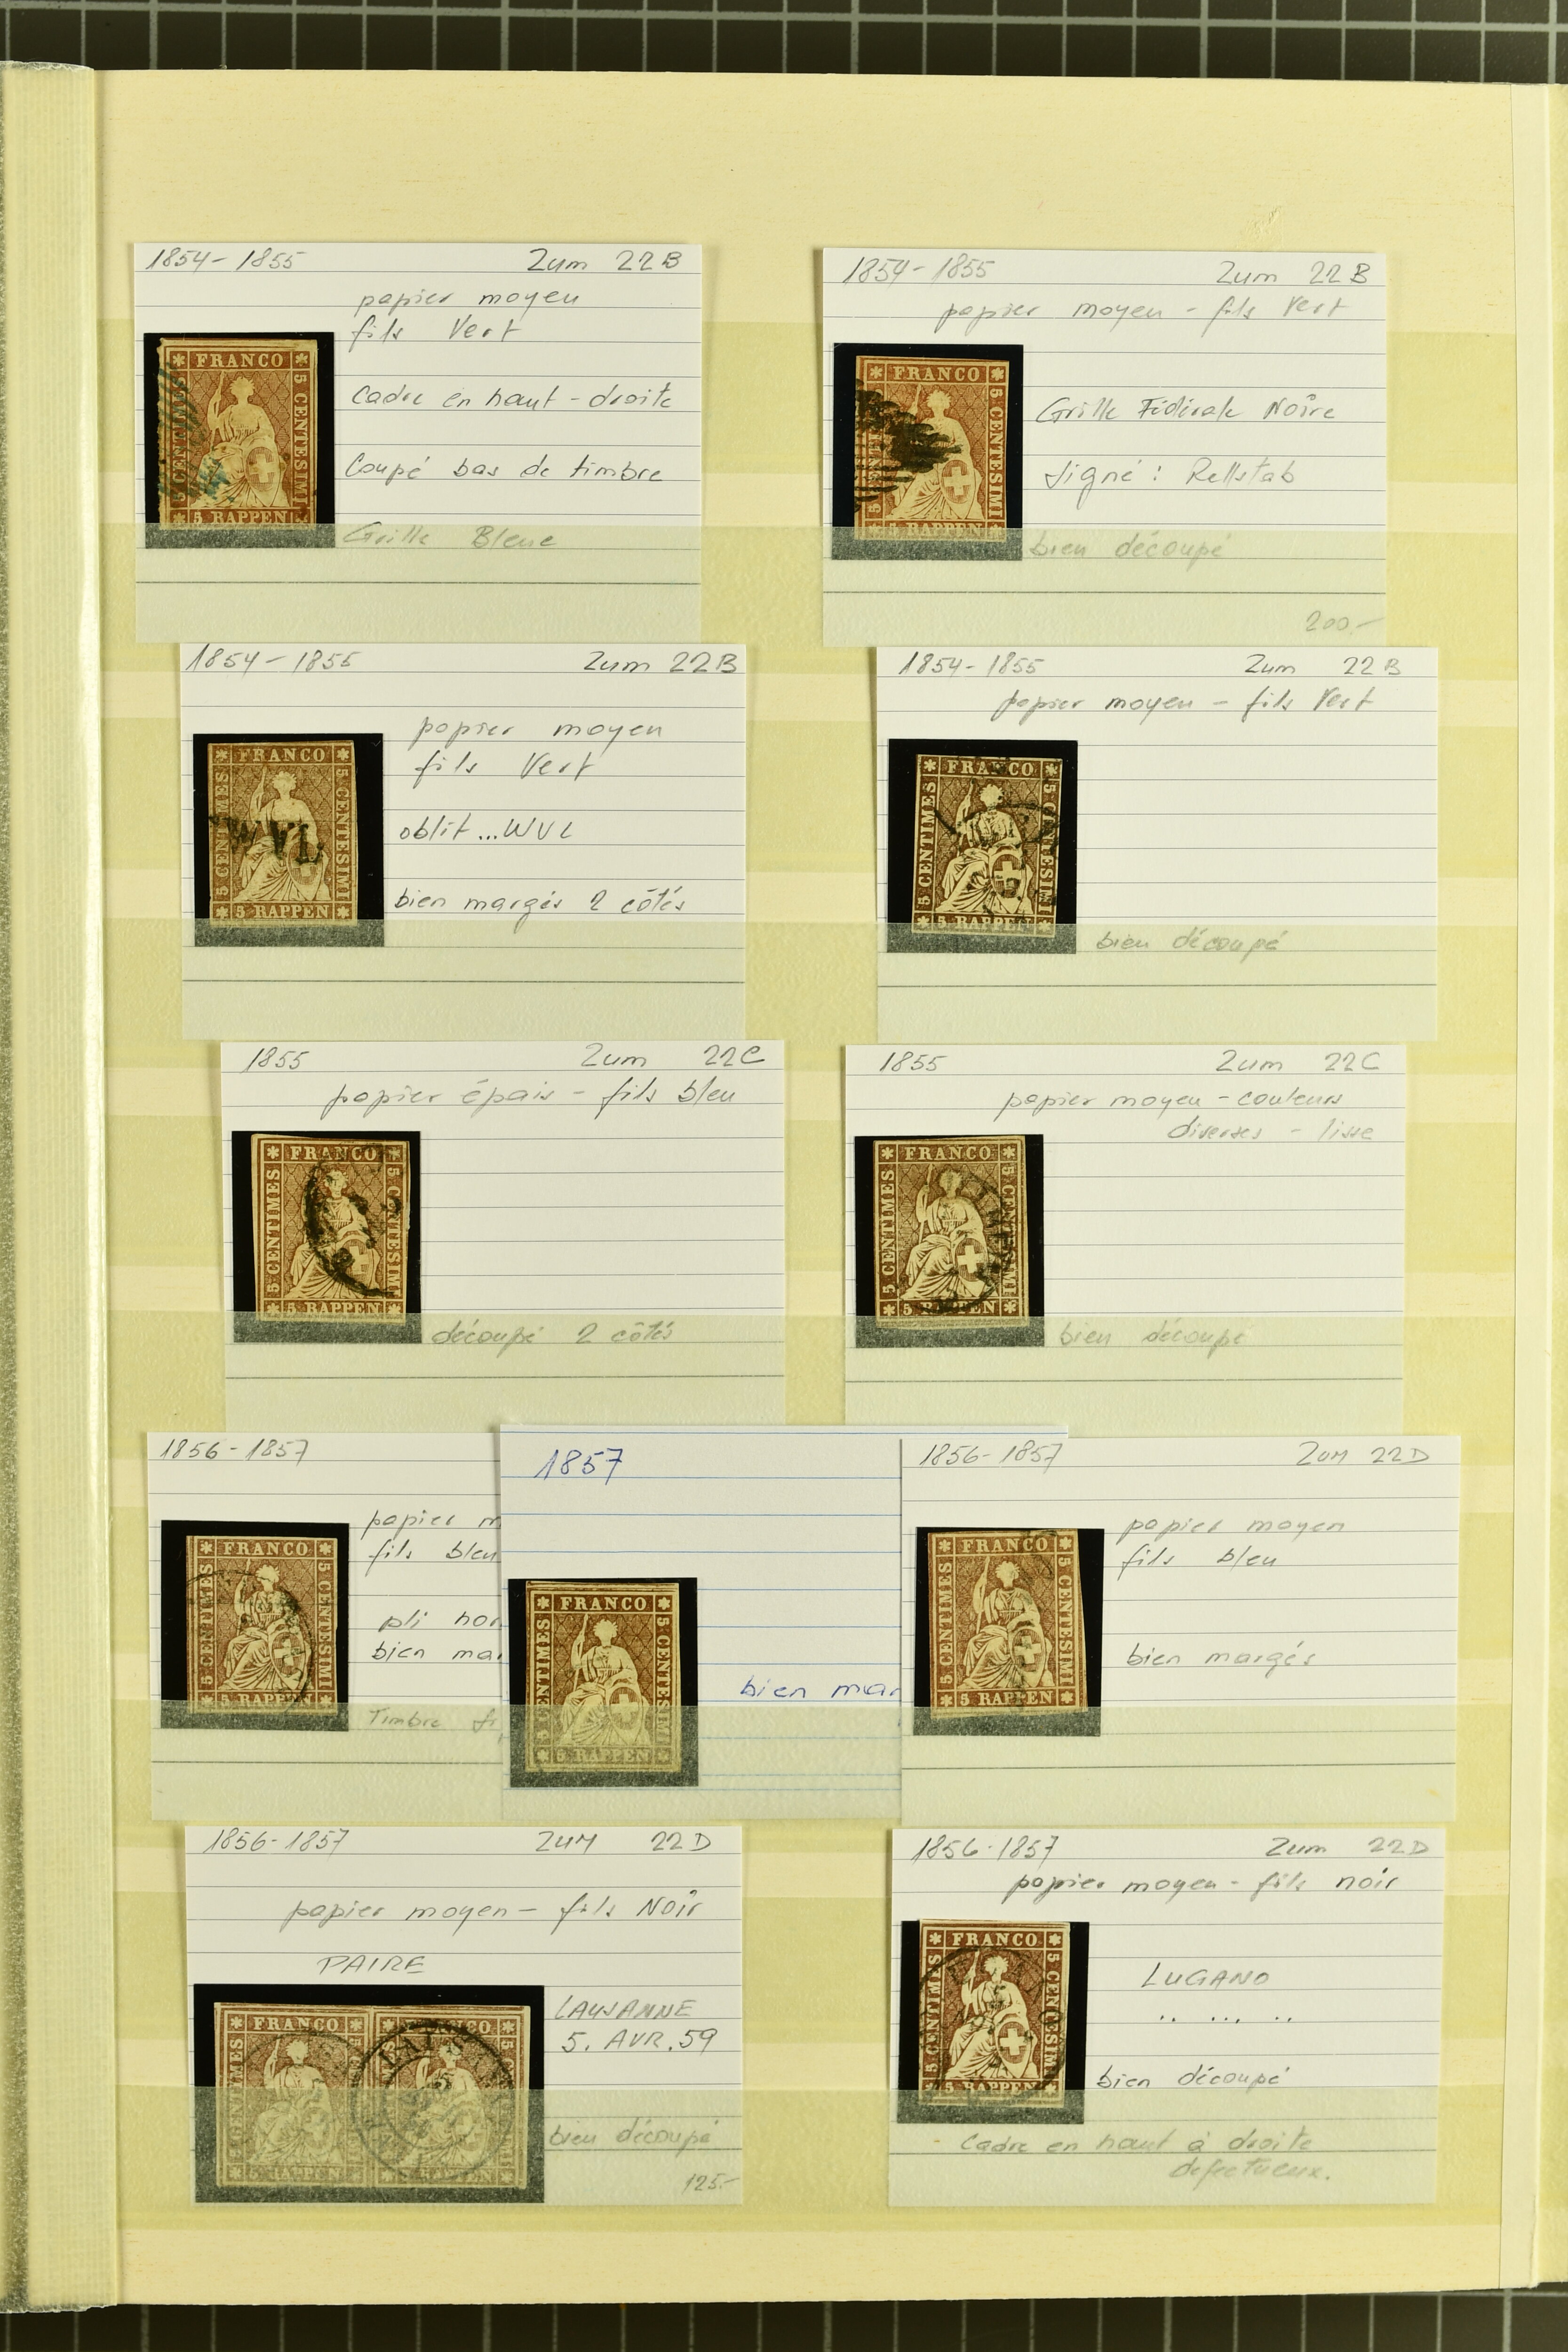 1854-1855 Zum 22B
papier moyen
fils Vert
Cadre en haut-droite
Coupé bas de timbre
Grille Bleue
FRANCO
5 CENTIMES
5 CENTESIMI
5 RAPPEN
1854-1855 Zum 22B
papier moyen - fils Vert
Grille Fédérale Noîre
signé: Rellstab
bien découpé
200.-
FRANCO
5 CENTESIMI
5 RAPPEN
1854-1855 Zum 22B
papier moyen
fils Vert
oblit...WVL
bien margés 2 côtés
FRANCO
5 CENTIMES
5 CENTESIMI
5 RAPPEN
WVL
1854-1855 Zum 22B
papier moyen - fils Vert
bien découpé
FRANCO
5 CENTIMES
5 CENTESIMI
5 RAPPEN
1855 Zum 22C
papier épais - fils bleu
découpé 2 côtés
FRANCO
5 CENTIMES
5 CENTESIMI
5 RAPPEN
1855 Zum 22C
papier moyen - couleurs
diverses - lisse
bien découpé
FRANCO
5 CENTIMES
5 CENTESIMI
5 RAPPEN
1856-1857
papier m
fils bleu
pli hor
bien mar
Timbre
FRANCO
5 CENTIMES
5 CENTESIMI
5 RAPPEN
1857
bien mar
FRANCO
5 CENTIMES
5 CENTESIMI
5 RAPPEN
1856-1857 Zum 22D
papier moyen
fils bleu
bien margés
FRANCO
5 CENTIMES
5 CENTESIMI
5 RAPPEN
1856-1857 ZUM 22D
papier moyen - fils Noîr
PAIRE
LAUSANNE
5. AVR. 59
bien découpé
125.-
FRANCO
5 CENTIMES
5 RAPPEN
FRANCO
5 RAPPEN
1856-1857 Zum 22D
papier moyen - fils noir
LUGANO
.. ... ..
bien découpé
- Cadre en haut à droite
defectueux.
FRANCO
5 CENTIMES
5 CENTESIMI
5 RAPPEN